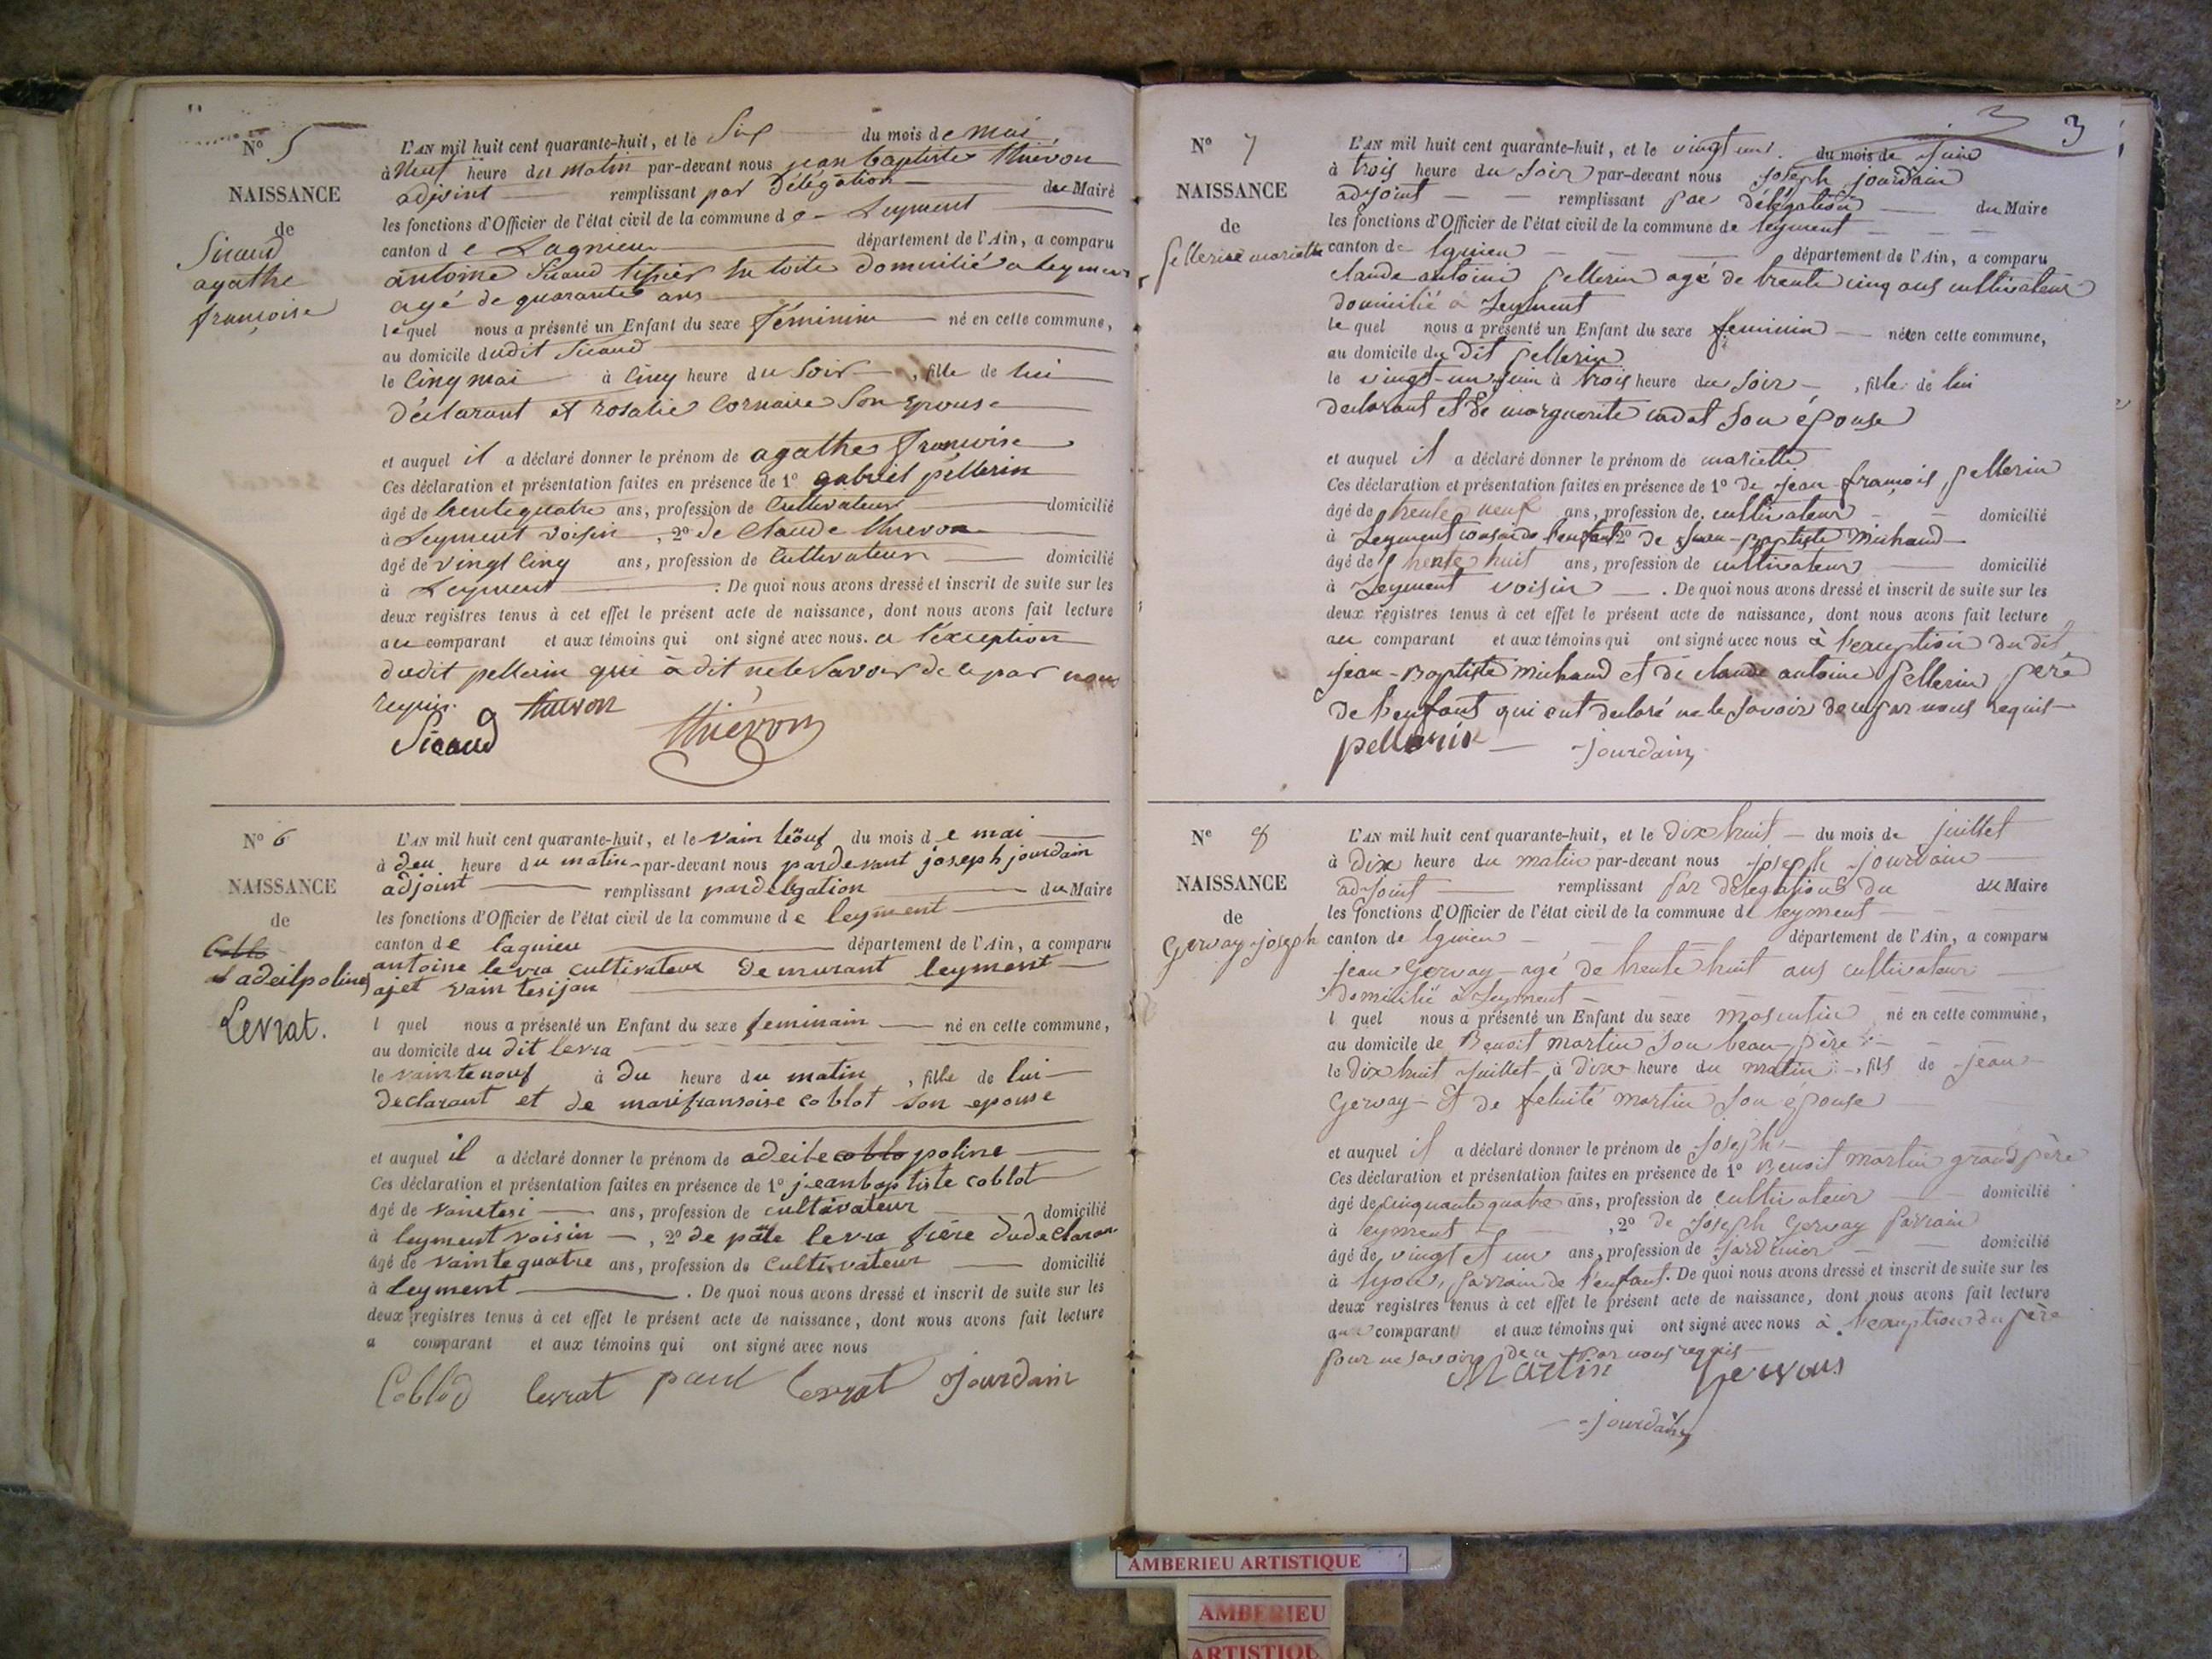 N° 5
NAISSANCE
de
Sicaud
agathe
françoise
L'AN mil huit cent quarante-huit, et le Six du mois de mai
à neuf heure du matin par-devant nous jean baptiste thiévon
adjoint remplissant par Délégation du Maire
les fonctions d'Officier de l'état civil de la commune de Leyment
canton de Lagnieu département de l'Ain, a comparu
antoine Sicaud tissier en toile domicilié a leyment
agé de quarante ans
lequel nous a présenté un Enfant du sexe féminin né en cette commune,
au domicile dudit Sicaud
le Cinq mai à Cinq heure du Soir, fille de lui
Déclarant et rosalie Cornaire Son Epouse
et auquel il a déclaré donner le prénom de agathe françoise
Ces déclaration et présentation faites en présence de 1° gabriel pellerin
âgé de trente quatre ans, profession de Cultivateur domicilié
à Leyment voisin, 2° de Claude thievon
âgé de vingt Cinq ans, profession de Cultivateur domicilié
à Leyment. De quoi nous avons dressé et inscrit de suite sur les
deux registres tenus à cet effet le présent acte de naissance, dont nous avons fait lecture
au comparant et aux témoins qui ont signé avec nous. a l'exception
dudit pellerin qui a dit ne le Savoir de ce par nous
requis. thievon
Sicaud thiévon
N° 6
NAISSANCE
de
Coblo
adeilpoline
Levrat.
L'AN mil huit cent quarante-huit, et le vain teöuf du mois de mai
à deu heure du matin par-devant nous pardevant joseph jourdain
adjoint remplissant pardelegation du Maire
les fonctions d'Officier de l'état civil de la commune de leyment
canton de lagnieu département de l'Ain, a comparu
antoine levra cultivateur demurant leyment
ajet vain tesijan
l quel nous a présenté un Enfant du sexe feminain né en cette commune,
au domicile du dit levra
le vaintenouf à du heure du matin, fille de lui
declarant et de marifransoise coblot son epouse
et auquel il a déclaré donner le prénom de adeile coblo poline
Ces déclaration et présentation faites en présence de 1° jeanbaptiste coblot
âgé de vaintesi ans, profession de cultivateur domicilié
à leyment voisin, 2° de pole levra frère dudeclaran
âgé de vaintequatre ans, profession de cultivateur domicilié
à leyment. De quoi nous avons dressé et inscrit de suite sur les
deux registres tenus à cet effet le présent acte de naissance, dont nous avons fait lecture
a comparant et aux témoins qui ont signé avec nous
Coblod levrat paul levrat jourdain
3
N° 7
NAISSANCE
de
Pellerin mariette
L'AN mil huit cent quarante-huit, et le vingt un du mois de Juin
à trois heure du Soir par-devant nous joseph jourdain
adjoint remplissant par délégation du Maire
les fonctions d'Officier de l'état civil de la commune de leyment
canton de lgnieu département de l'Ain, a comparu
claude antoine Pellerin agé de trente cinq ans cultivateur
domicilié à Leyment
le quel nous a présenté un Enfant du sexe feminin née en cette commune,
au domicile du Dit Pellerin
le vingt-un juin à trois heure du Soir, fille de lui
declarant et de marguerite cadot Son épouse
et auquel il a déclaré donner le prénom de mariette
Ces déclaration et présentation faites en présence de 1° de jean-françois Pellerin
âgé de trente neuf ans, profession de cultivateur domicilié
à Leyment 2° de Jean-Baptiste Michaud
âgé de trente huit ans, profession de cultivateur domicilié
à Leyment voisin. De quoi nous avons dressé et inscrit de suite sur les
deux registres tenus à cet effet le présent acte de naissance, dont nous avons fait lecture
au comparant et aux témoins qui ont signé avec nous à l'exception du dit
jean-Baptiste Michaud et de claude antoine Pellerin père
de l'enfant qui ont declaré ne le savoir de ce par nous requit
pellerin jourdain
N° 8
NAISSANCE
de
Gervay joseph
L'AN mil huit cent quarante-huit, et le Dix huit du mois de juillet
à Dix heure du matin par-devant nous joseph jourdain
adjoint remplissant par délégation du du Maire
les fonctions d'Officier de l'état civil de la commune de leyment
canton de lgnieu département de l'Ain, a comparu
jean Gervay agé de trente huit ans cultivateur
Domicilié à Leyment
l quel nous a présenté un Enfant du sexe masculin né en cette commune,
au domicile de Benoit martin Son beau-père
le Dix huit juillet à Dix heure du matin, fils de jean
Gervay et de felicité martin Son épouse
et auquel il a déclaré donner le prénom de Joseph
Ces déclaration et présentation faites en présence de 1° Benoit martin grand père
âgé de cinquante quatre ans, profession de cultivateur domicilié
à leyment, 2° de Joseph Gervay parrain
âgé de vingt et un ans, profession de jardinier domicilié
à lyon, parrain de l'enfant. De quoi nous avons dressé et inscrit de suite sur les
deux registres tenus à cet effet le présent acte de naissance, dont nous avons fait lecture
au comparant et aux témoins qui ont signé avec nous à l'exception du père
pour ne savoir de ce par nous requis
Martin Gervais
jourdain
AMBERIEU ARTISTIQUE
AMBERIEU
ARTISTIQU